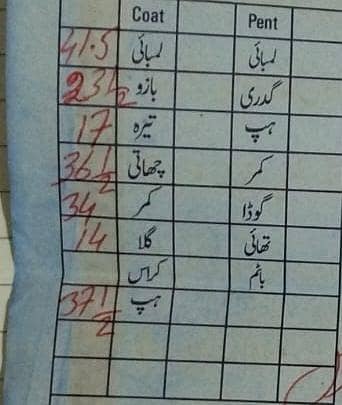 Coat Pent
41.5 لمبائی لمبائی
23 1/2 بازو گدری
17 تیرہ ہپ
36 1/2 چھاتی کمر
34 کمر گوڈا
14 گلا تھائی
کراس باٹم
37 1/2 ہپ